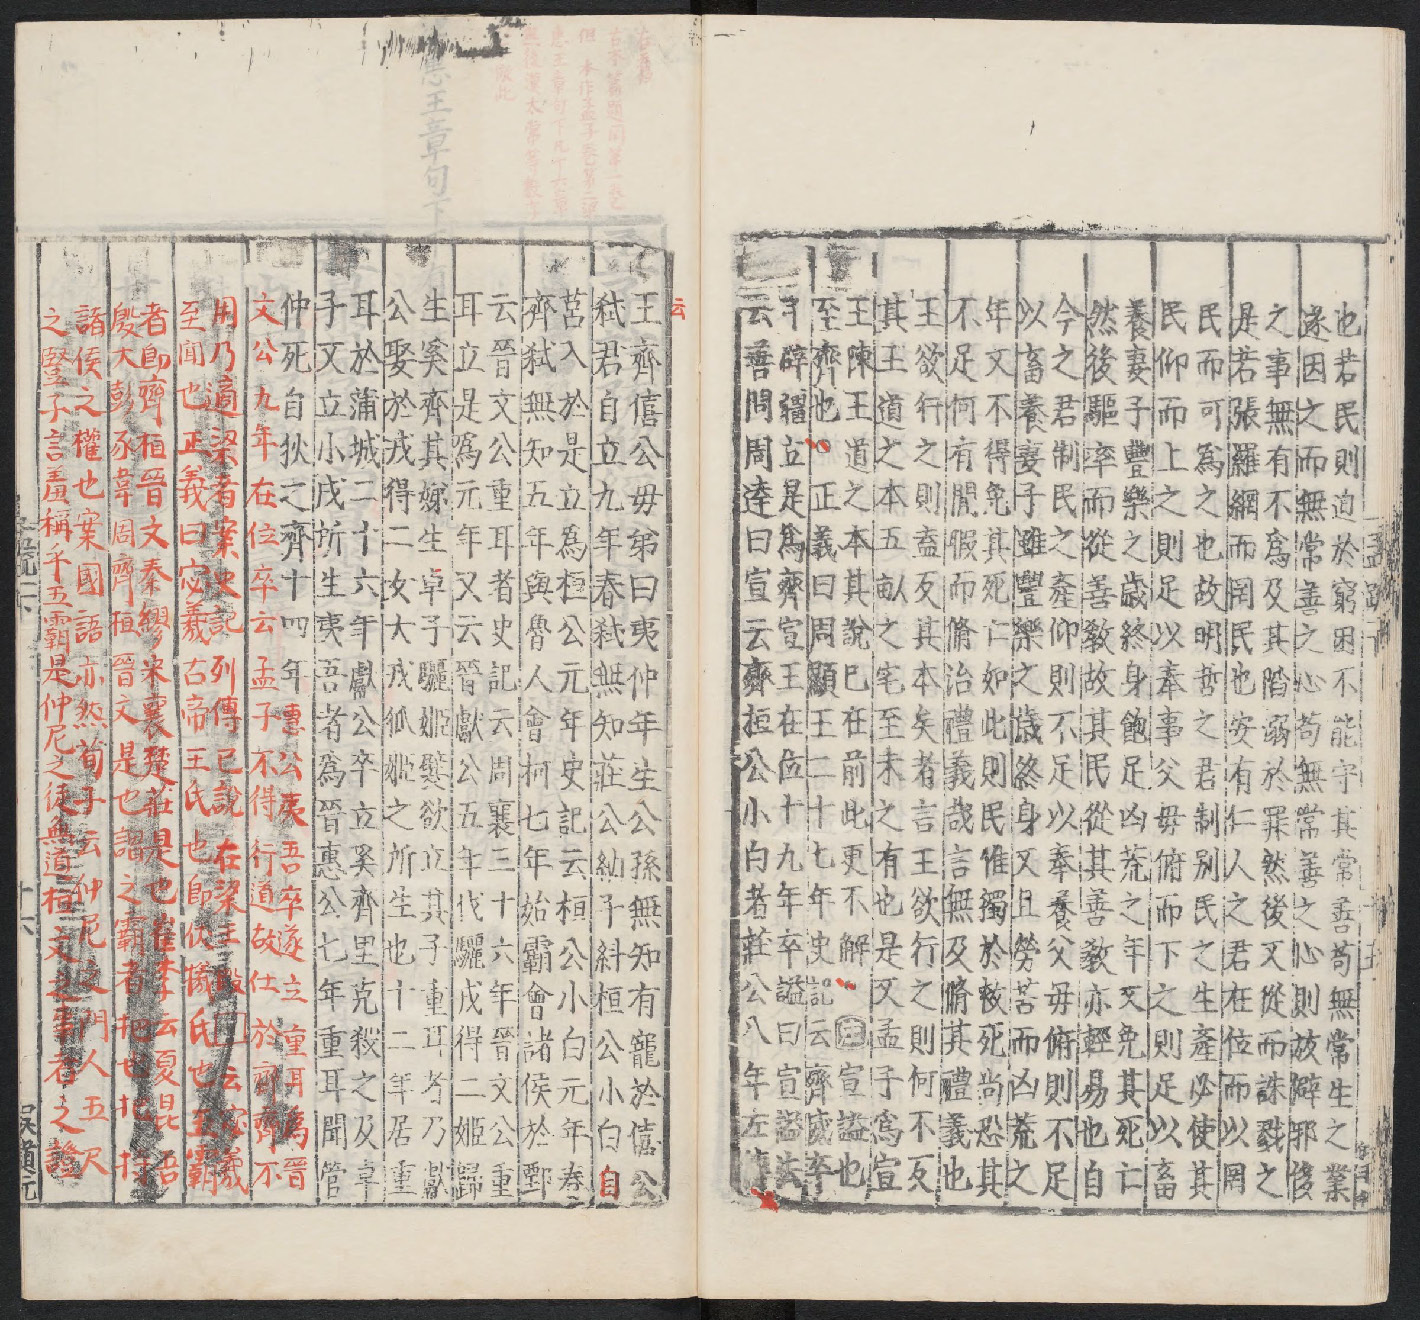 也若民則迫於窮困不能守其常善苟無常生之業
遂因之而無常善之心苟無常善之心則放僻邪侈
之事無有不爲及其陷溺於罪然後又從而誅戮之
是若張羅網而罔民也安有仁人之君在位而以罔
民而可爲之也故明哲之君制别民之生產必使其
民仰而上之則足以奉事父母俯而下之則足以畜
養妻子豐樂之歲終身飽足凶荒之年又免其死亡
然後驅率而從善教故其民從其善教亦輕易也自
今之君制民之產仰則不足以奉養父母俯則不足
以畜養妻子雖豐樂之歲終身又且勞苦而凶荒之
年又不得免其死亡如此則民惟獨於救死尚恐其
不足何有閒暇而脩治禮義哉言無及脩其禮義也
王欲行之則盍反其本矣者言王欲行之則何不反
其王道之本五畝之宅至未之有也是又孟子爲宣
王陳王道之本其說已在前此更不解 注宣謚也
至齊也 正義曰周顯王二十七年史記云齊威卒
子辟彊立是爲齊宣王在位十九年卒謚曰宣謚法
云善問周達曰宣云齊桓公小白者莊公八年左傳
云
王齊僖公母弟曰夷仲年生公孫無知有寵於僖公
弒君自立九年春弒無知莊公納子糾桓公小白自
莒入於是立爲桓公元年史記云桓公小白元年春
齊弒無知五年與魯人會柯七年始霸會諸侯於鄄
云晉文公重耳者史記云周襄王十六年晉文公重
耳立是爲元年又云晉獻公五年伐驪戎得二姬歸
生奚齊其娣生卓子驪姬嬖欲立其子重耳者乃獻
公娶於戎得二女大戎狐姬之所生也十二年居重
耳於蒲城二十六年獻公卒立奚齊里克殺之及卓
子又立小戎所生夷吾者爲晉惠公七年重耳聞管
仲死自狄之齊十四年惠公夷吾卒遂立重耳爲晉
文公九年在位卒云孟子不得行道故仕於齊齊不
用乃適梁者案史記列傳已說在梁王段云宓羲
至聞也正義曰宓羲古帝王氏也卽伏犧氏也五霸
者卽齊桓晉文秦繆宋襄楚莊是也崔李云夏昆吾
殷大彭豕韋周齊桓晉文是也謂之霸者把也把持
諸侯之權也案國語亦然荀子云仲尼之門人五尺
之豎子言羞稱乎五霸是仲尼之徒無道桓文之事者之證
惠王章句下